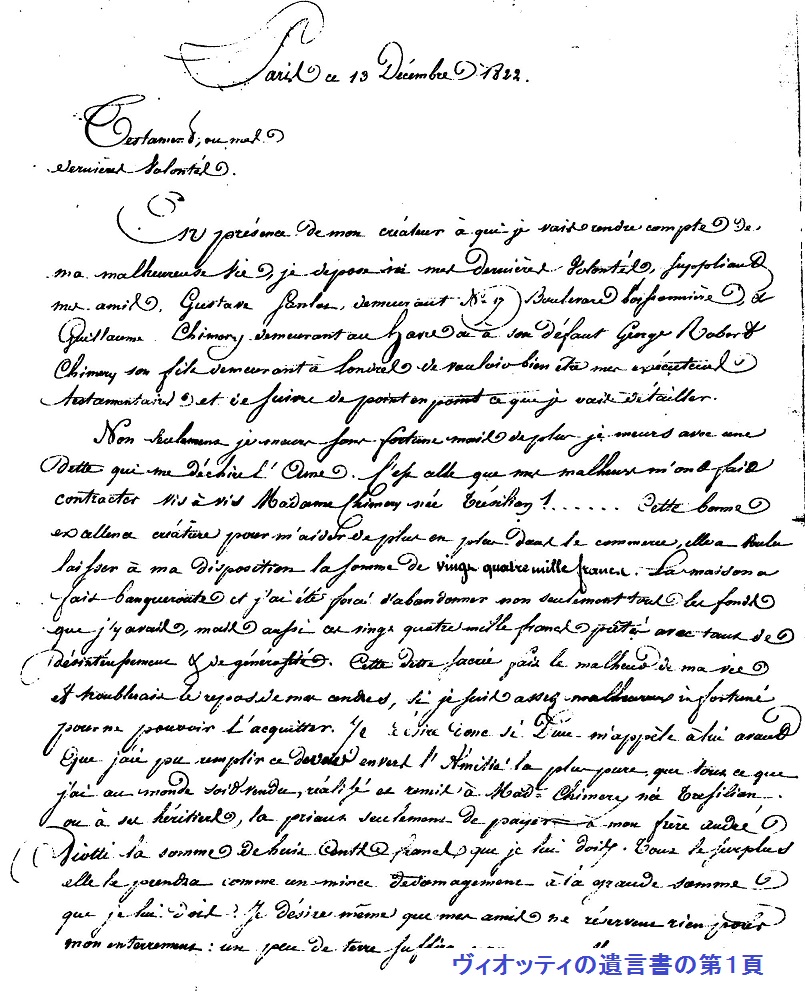 Paris ce 13 Décembre 1822.
Testament, ou mes
dernières Volontés.
En présence de mon créateur à qui je vais rendre compte de
ma malheureuse Vie, je dépose ici mes dernières Volontés, suppliant
mes amis, Gustave demeurant N.º 17 Boulevard Poissonnière, &
Guillaume Chinnery demeurant au Havre ou à son défaut George Robert
Chinnery son fils demeurant à Londres de vouloir bien être mes exécuteurs
testamentaires et de suivre de point en point ce que je vais détailler.
Non seulement je meurs sans fortune mais de plus je meurs avec une
Dette qui me déchire l'Ame. C'est celle que mes malheurs m'ont fait
contracter vis à vis Madame Chinnery née Trésilian !...... Cette bonne
excellente créature pour m'aider de plus en plus dans le commerce, elle a voulu
laisser à ma disposition la somme de vingt quatre mille francs. La maison a
fait banqueroute et j'ai été forcé d'abandonner non seulement tous les fonds
que j'y avais, mais aussi ces vingt quatre mille francs prêtés avec tant de
désintéressement & de générosité. Cette dette sacrée fait le malheur de ma vie
et troublerait le repos de mes cendres, si je suis assez malheureux infortuné
pour ne pouvoir l'acquitter. Je désire donc si Dieu m'appèle à lui avant
Que j'aie pu remplir ce devoir envers l'Amitié la plus pure, que tous ce que
j'ai au monde soit vendu, réalisé et remis à Mad.e Chinnery née Trésilian
ou à ses héritiers, la priant seulement de payer à mon frère André
Viotti la somme de huit Cents francs que je lui dois. Tous le surplus
elle le prendra comme un mince dedomagement à la grande somme
que je lui dois. Je désire même que mes amis ne réservent rien pour
mon enterrement : un peu de terre suffira
ヴィオッティの遺言書の第1頁